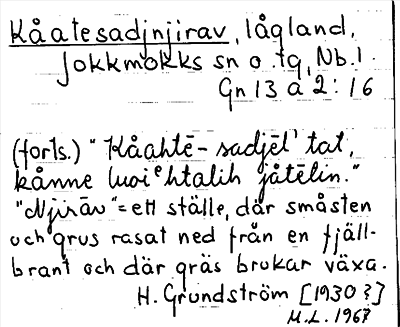 Kåatesadjnjirav, lågland,
Jokkmokks sn o. tg, Nb.l.
Gn 13 a 2:16
(forts.) "Kåahtē-sadjēl' tat,
kånne luoiᵉhtalih jåtēlin."
"Njirāv" = ett ställe, där småsten
och grus rasat ned från en fjäll-
brant och där gräs brukar växa.
H. Grundström [1930?]
M.L. 1967